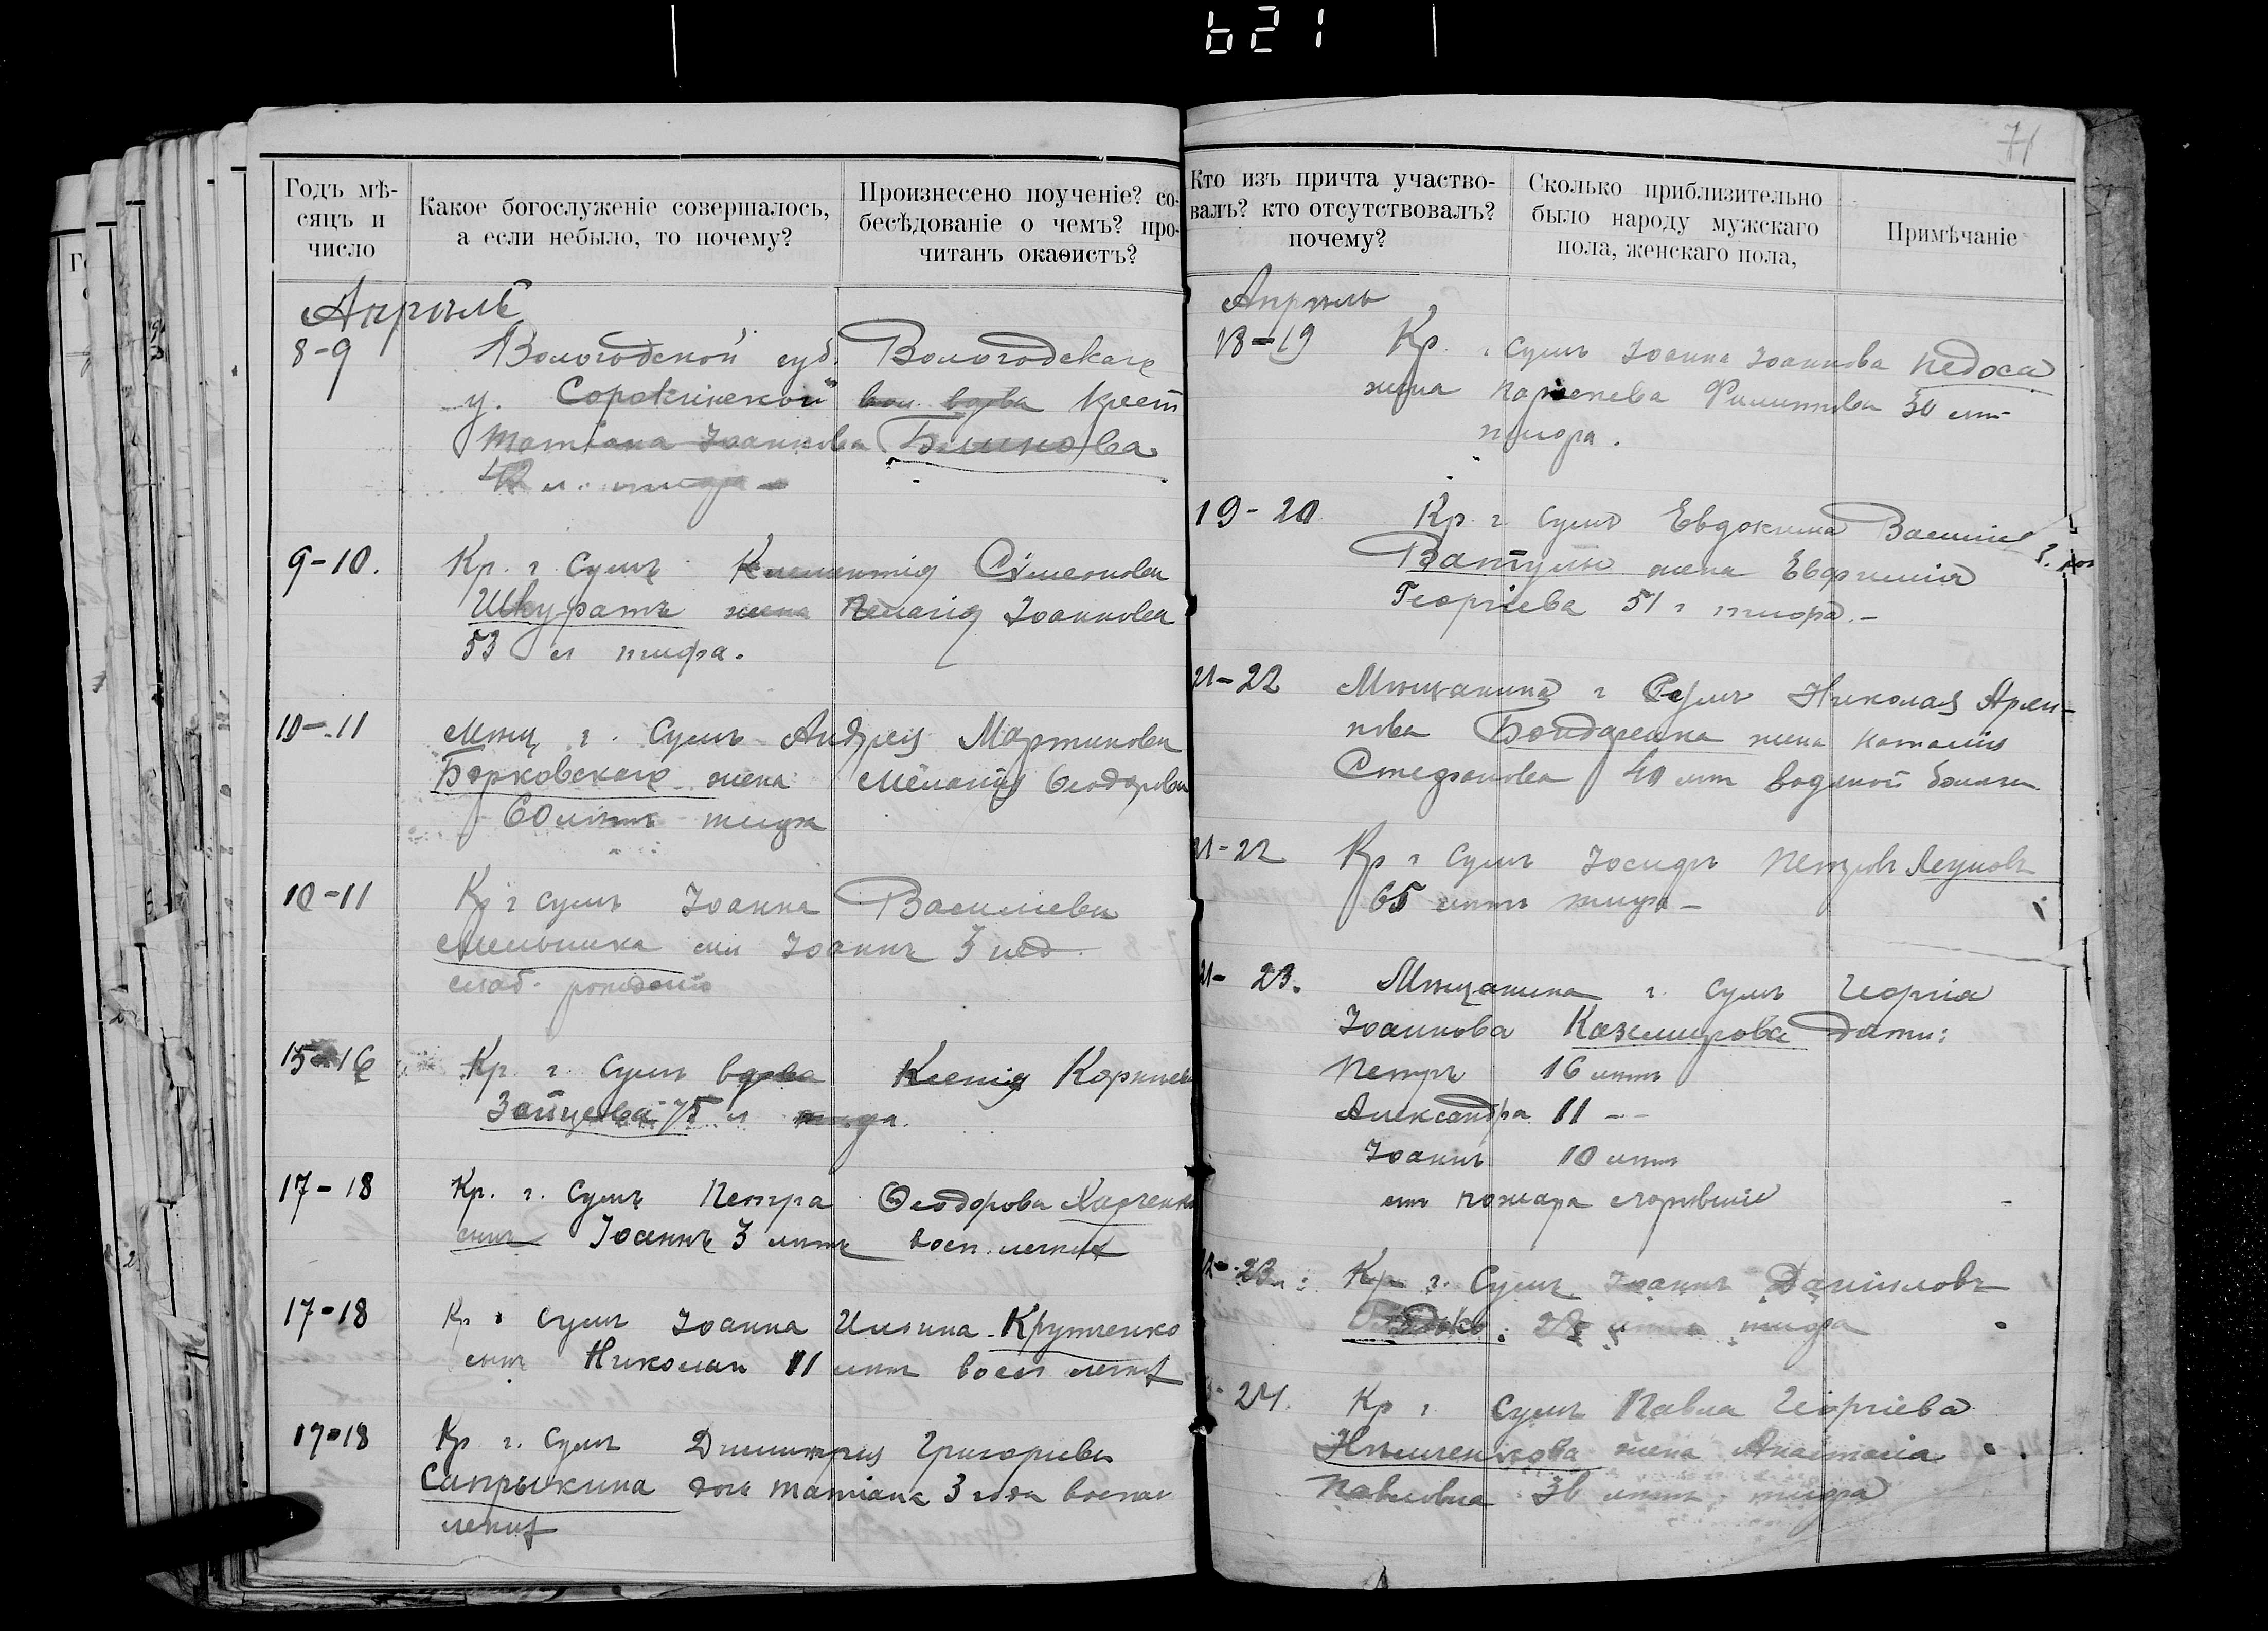 621
Годъ мѣ-
сяцъ и
число
Какое богослуженіе совершалось,
а если небыло, то почему?
Произнесено поученіе? со-
бесѣдованіе о чемъ? про-
читанъ окаѳистъ?
Апрѣль
8-9 Вологодской губ. Вологодскаго
у. Сорокинской вол. вдова крест
Татіана Іоаннова
42 л. тифа
9-10. Кр. г. Сумъ Климентія Симеонова
Шкуратъ жена Пелагія Іоаннова
53 л тифа.
10-11 Мѣщ. г. Сумъ Андрея Мартинова
Борковскаго жена Меланія Ѳеодорова
60 лѣтъ тифа
10-11 Кр г Сумъ Іоанна Василіева
Мельника сын Іоаннъ 3 нед.
слаб. рожденія
15-16 Кр. г. Сумъ вдова Ксенія
Зайцева 75 л тифа.
17-18 Кр. г. Сумъ Петра Ѳеодорова Харченка
сынъ Іоаннъ 3 лѣтъ восп. легких
17-18 Кр г Сумъ Іоанна Ильина Крутченко
сынъ Николай 11 лѣтъ восп легк
17-18 Кр г. Сумъ Димитрія Григоріева
Сапрыкина дочь Татіана 3 года воспал
легких
71
Кто изъ причта участво-
валъ? кто отсутствовалъ?
почему?
Сколько приблизительно
было народу мужскаго
пола, женскаго пола,
Примѣчаніе
Апрѣль
18-19 Кр. г Сумъ Іоанна Іоаннова Недоса
жена Филиппова 30 лѣт
тифа.
19-20 Кр. г Сумъ Евдокима Василіе
жена Евфимія
Георгіева 51 г тифа.-
21-22 Мѣщанина г Сумъ Николая
Бондаренка жена Наталія
Стефанова 40 лѣт водяной болѣзн
21-22 Кр г Сумъ Іосифъ Петровъ Ягуновъ
65 лѣтъ тифа-
21-23. Мѣщанина г. Сумъ Георгія
Іоаннова Казимірова дѣти:
Петръ 16 лѣтъ
Александра 11 --
Іоаннъ 10 лѣтъ
отъ пожара сгорѣвшіе
23 Кр г. Сумъ Іоаннъ Даніиловъ
тифа
24. Кр г. Сумъ Павла Георгіева
жена Анастасія
Павловна 36 лѣтъ тифа